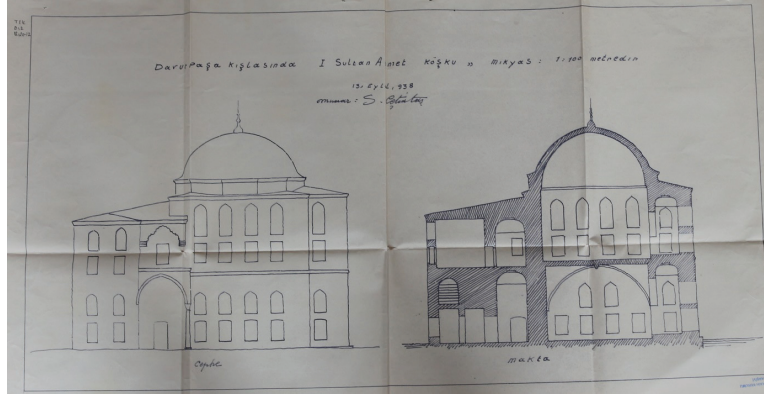 DavutPaşa Kışlasında I Sultan Amet köşkü Mikyas: 1:100 metredir
13. Eylül. 938
mimar: S. Çetintaş
Cephe
makta